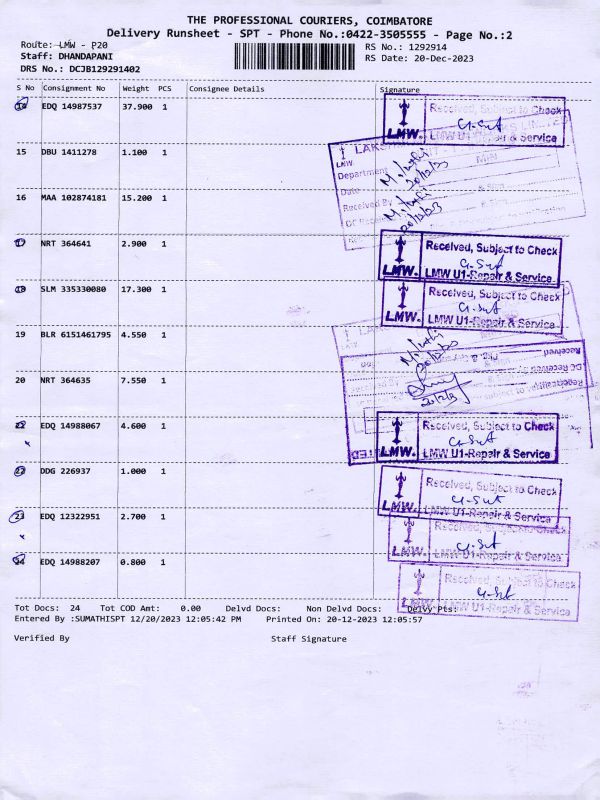 THE PROFESSIONAL COURIERS, COIMBATORE
Delivery Runsheet - SPT - Phone No.:0422-3505555 - Page No.:2
Route: LMW - P20
RS No.: 1292914
Staff: DHANDAPANI
RS Date: 20-Dec-2023
DRS No.: DCJB129291402
S No Consignment No Weight PCS Consignee Details Signature
14 EDQ 14987537 37.900 1
Received, Subject to Check
LMW. LMW U1-Repair & Service
15 DBU 1411278 1.100 1
LMW
Department
Date
Received By
20/12/23
16 MAA 102874181 15.200 1
20/12/23
17 NRT 364641 2.900 1
Received, Subject to Check
LMW. LMW U1-Repair & Service
18 SLM 335330080 17.300 1
Received, Subject to Check
LMW. LMW U1-Repair & Service
19 BLR 6151461795 4.550 1
DC Received
20 NRT 364635 7.550 1
EDQ 14988067 4.600 1
Received, Subject to Check
LMW. LMW U1-Repair & Service
22 DDG 226937 1.000 1
Received, Subject to Check
LMW. LMW U1-Repair & Service
23 EDQ 12322951 2.700 1
Received, Subject to Check
LMW. LMW U1-Repair & Service
24 EDQ 14988207 0.800 1
Received, Subject to Check
LMW. LMW U1-Repair & Service
Tot Docs: 24 Tot COD Amt: 0.00 Delvd Docs: Non Delvd Docs: Delvy Pts:
Entered By :SUMATHISPT 12/20/2023 12:05:42 PM Printed On: 20-12-2023 12:05:57
Verified By Staff Signature